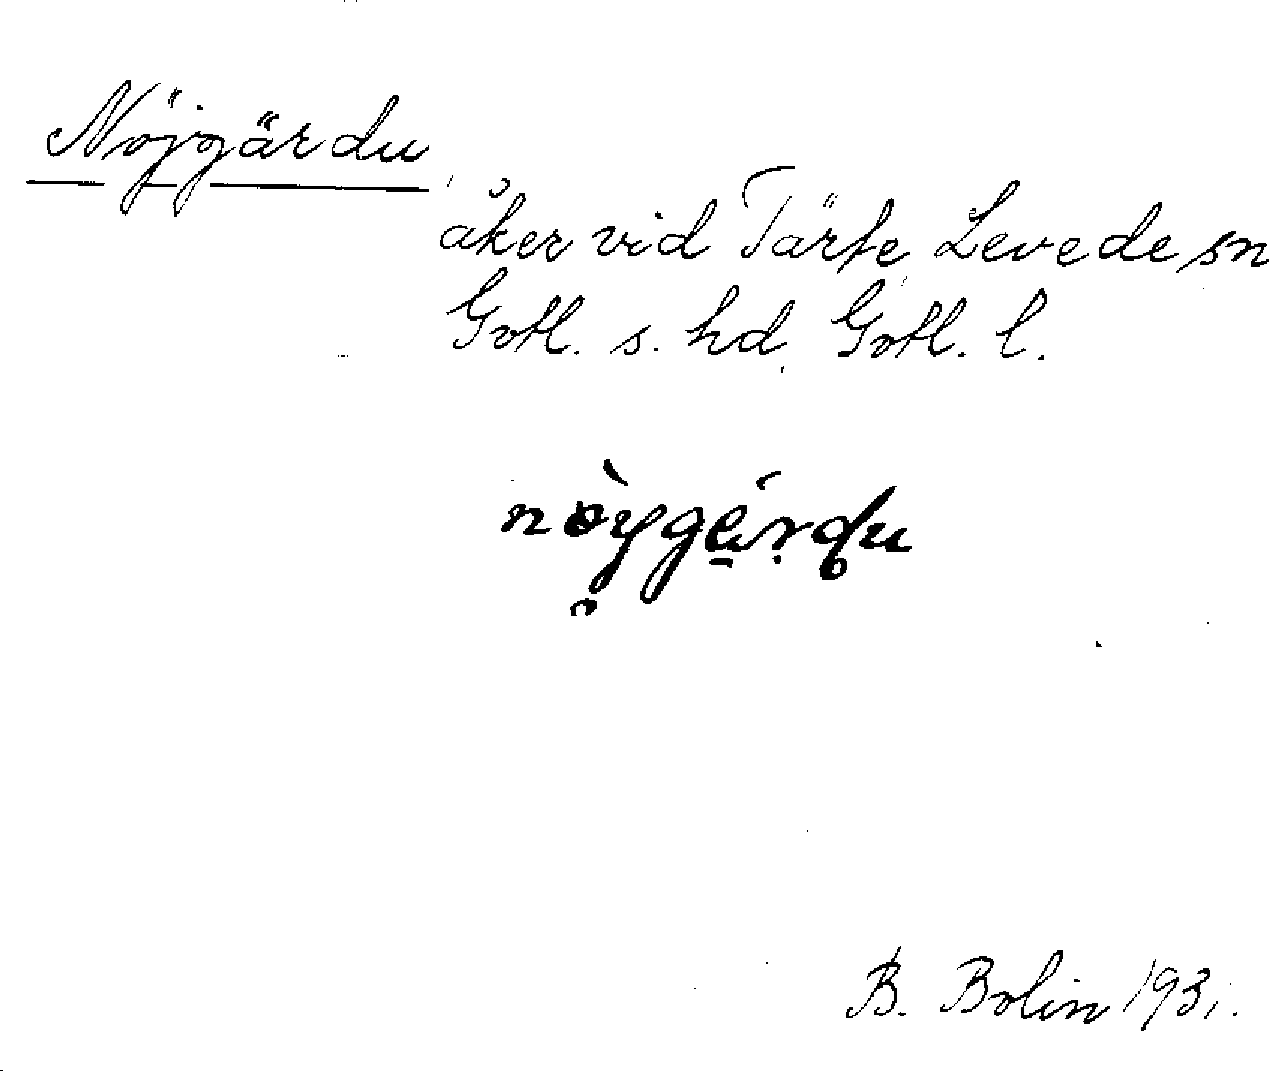 Nöjgärdu
åker vid Tärfe, Levede sn
Gotl. s. hd, Gotl. l.
B. Bolin 1931.